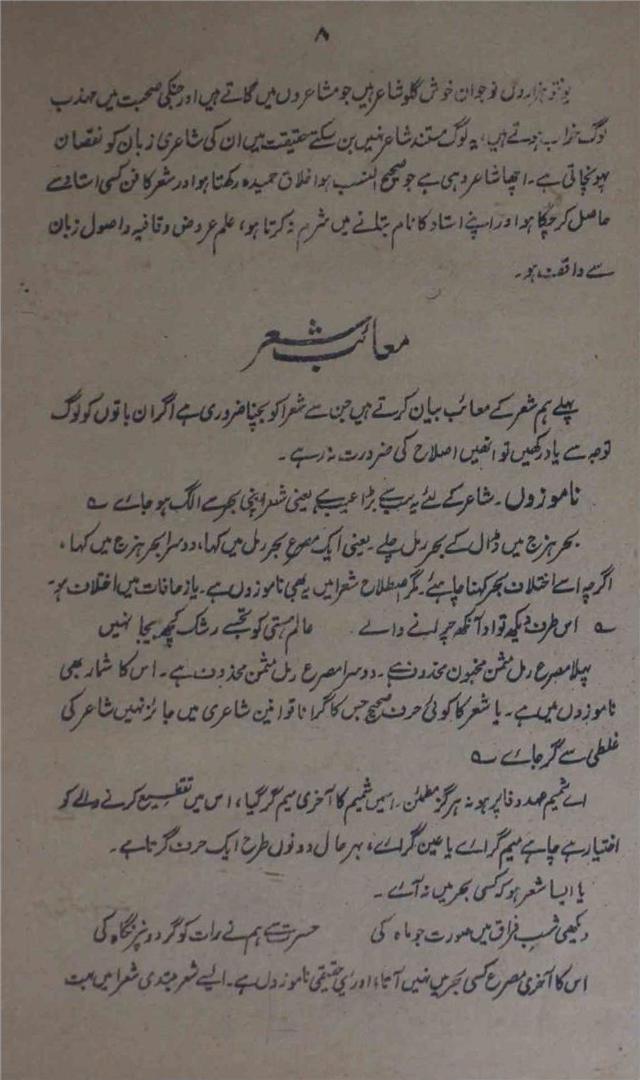 ۸
یوں تو ہزاروں نوجوان خوش گلو شاعر ہیں جو مشاعروں میں گاتے ہیں اور جنکی صحبت میں مہذب
لوگ خراب ہوتے ہیں، یہ لوگ مستند شاعر نہیں بن سکتے حقیقت میں ان کی شاعری زبان کو نقصان
پہونچاتی ہے۔ اچھا شاعر وہی ہے جو صحیح النسب ہو اخلاق حمیدہ رکھتا ہو اور شعر کا فن کسی استاد سے
حاصل کر چکا ہو اور اپنے استاد کا نام بتانے میں شرم نہ کرتا ہو، علم عروض و قافیہ و اصول زبان
سے واقف ہو۔
معائب شعر
پہلے ہم شعر کے معائب بیان کرتے ہیں جن سے شعرا کو بچنا ضروری ہے اگر ان باتوں کو لوگ
توجہ سے یاد رکھیں تو انھیں اصلاح کی ضرورت نہ رہے۔
ناموزوں۔ شاعر کے لئے یہ سب سے بڑا عیب ہے یعنی شعر اپنی بحر سے الگ ہو جاے ؎
بحر ہزج میں ڈال کے بحر رمل چلے۔ یعنی ایک مصرع بحر رمل میں کہا، دوسرا بحر ہزج میں کہا،
اگرچہ اسے اختلاف بحر کہنا چاہئے۔ مگر اصطلاح شعرا میں یہ بھی ناموزوں ہے۔ یا زحافات میں اختلاف ہو۔
؎ اس طرف دیکھ تو او آنکھ چرانے والے عالم مستی کو تجھسے رشک کچھ بیجا نہیں
پہلا مصرع رمل مثمن مخبون محذوف ہے۔ دوسرا مصرع رمل مثمن محذوف ہے۔ اس کا شمار بھی
ناموزوں میں ہے۔ یا شعر کا کوئی حرف صحیح جس کا گرانا قوانین شاعری میں جائز نہیں شاعر کی
غلطی سے گر جاے ؎
اے شمیم عہد وفا پر ہو نہ ہرگز مطمئن۔ اسمیں شمیم کا آخری میم گر گیا، اس میں تقطیع کرنے والے کو
اختیار ہے چاہے میم گراے یا عین گراے، بہر حال دونوں طرح ایک حرف گرتا ہے۔
یا ایسا شعر ہو کہ کسی بحر میں نہ آے۔
دیکھی شب فراق میں صورت جو ماہ کی حسرت سے ہم نے رات کو گردوں پر نگاہ کی
اس کا آخری مصرع کسی بحر میں نہیں آتا، اور یہی حقیقی ناموزوں ہے۔ ایسے شعر مبتدی شعرا میں بہت